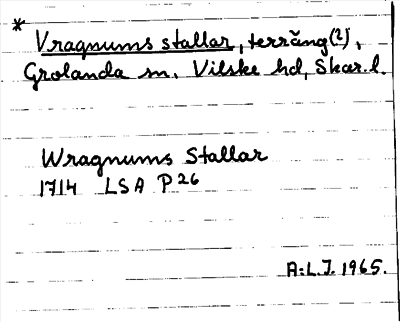 *
Vragnums stallar, terräng(?),
Grolanda sn, Vilske hd, Skar. l.
Wragnums Stallar
1714 LSA P 26
A:L.J. 1965.